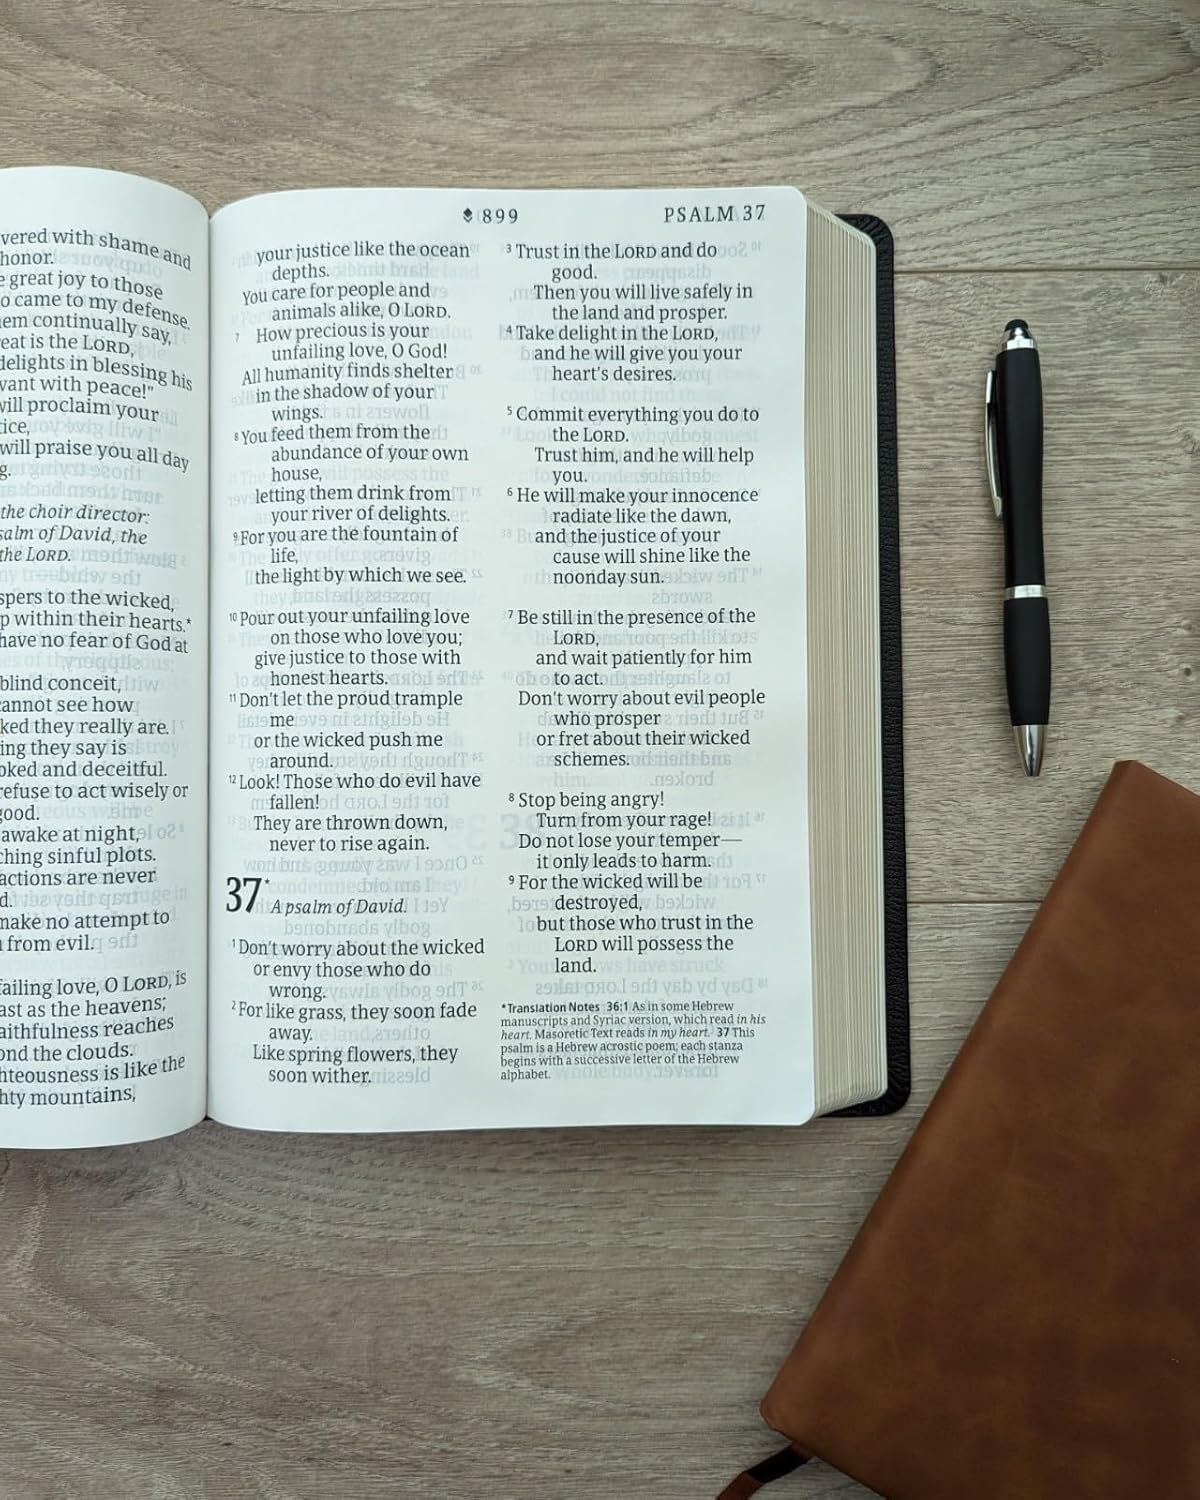 vered with shame and
honor.
great joy to those
came to my defense.
continually say,
is the LORD,
delights in blessing his
with peace!"
will proclaim your
will praise you all day
the choir director:
of David, the
the LORD.
to the wicked,
within their hearts.*
have no fear of God at
blind conceit,
cannot see how
they really are.
they say is
and deceitful.
refuse to act wisely or
good.
awake at night,
sinful plots.
actions are never
make no attempt to
from evil.
love, O LORD, is
as the heavens;
reaches
the clouds.
is like the
mountains,
899
PSALM 37
your justice like the ocean
depths.
You care for people and
animals alike, O LORD.
7 How precious is your
unfailing love, O God!
All humanity finds shelter
in the shadow of your
wings.
8 You feed them from the
abundance of your own
house,
letting them drink from
your river of delights.
9 For you are the fountain of
life,
the light by which we see.
10 Pour out your unfailing love
on those who love you;
give justice to those with
honest hearts.
11 Don't let the proud trample
me
or the wicked push me
around.
12 Look! Those who do evil have
fallen!
They are thrown down,
never to rise again.
37*
A psalm of David.
1 Don't worry about the wicked
or envy those who do
wrong.
2 For like grass, they soon fade
away.
Like spring flowers, they
soon wither.
3 Trust in the LORD and do
good.
Then you will live safely in
the land and prosper.
4 Take delight in the LORD,
and he will give you your
heart's desires.
5 Commit everything you do to
the LORD.
Trust him, and he will help
you.
6 He will make your innocence
radiate like the dawn,
and the justice of your
cause will shine like the
noonday sun.
7 Be still in the presence of the
LORD,
and wait patiently for him
to act.
Don't worry about evil people
who prosper
or fret about their wicked
schemes.
8 Stop being angry!
Turn from your rage!
Do not lose your temper—
it only leads to harm.
9 For the wicked will be
destroyed,
but those who trust in the
LORD will possess the
land.
*Translation Notes 36:1 As in some Hebrew
manuscripts and Syriac version, which read in his
heart. Masoretic Text reads in my heart. 37 This
psalm is a Hebrew acrostic poem; each stanza
begins with a successive letter of the Hebrew
alphabet.